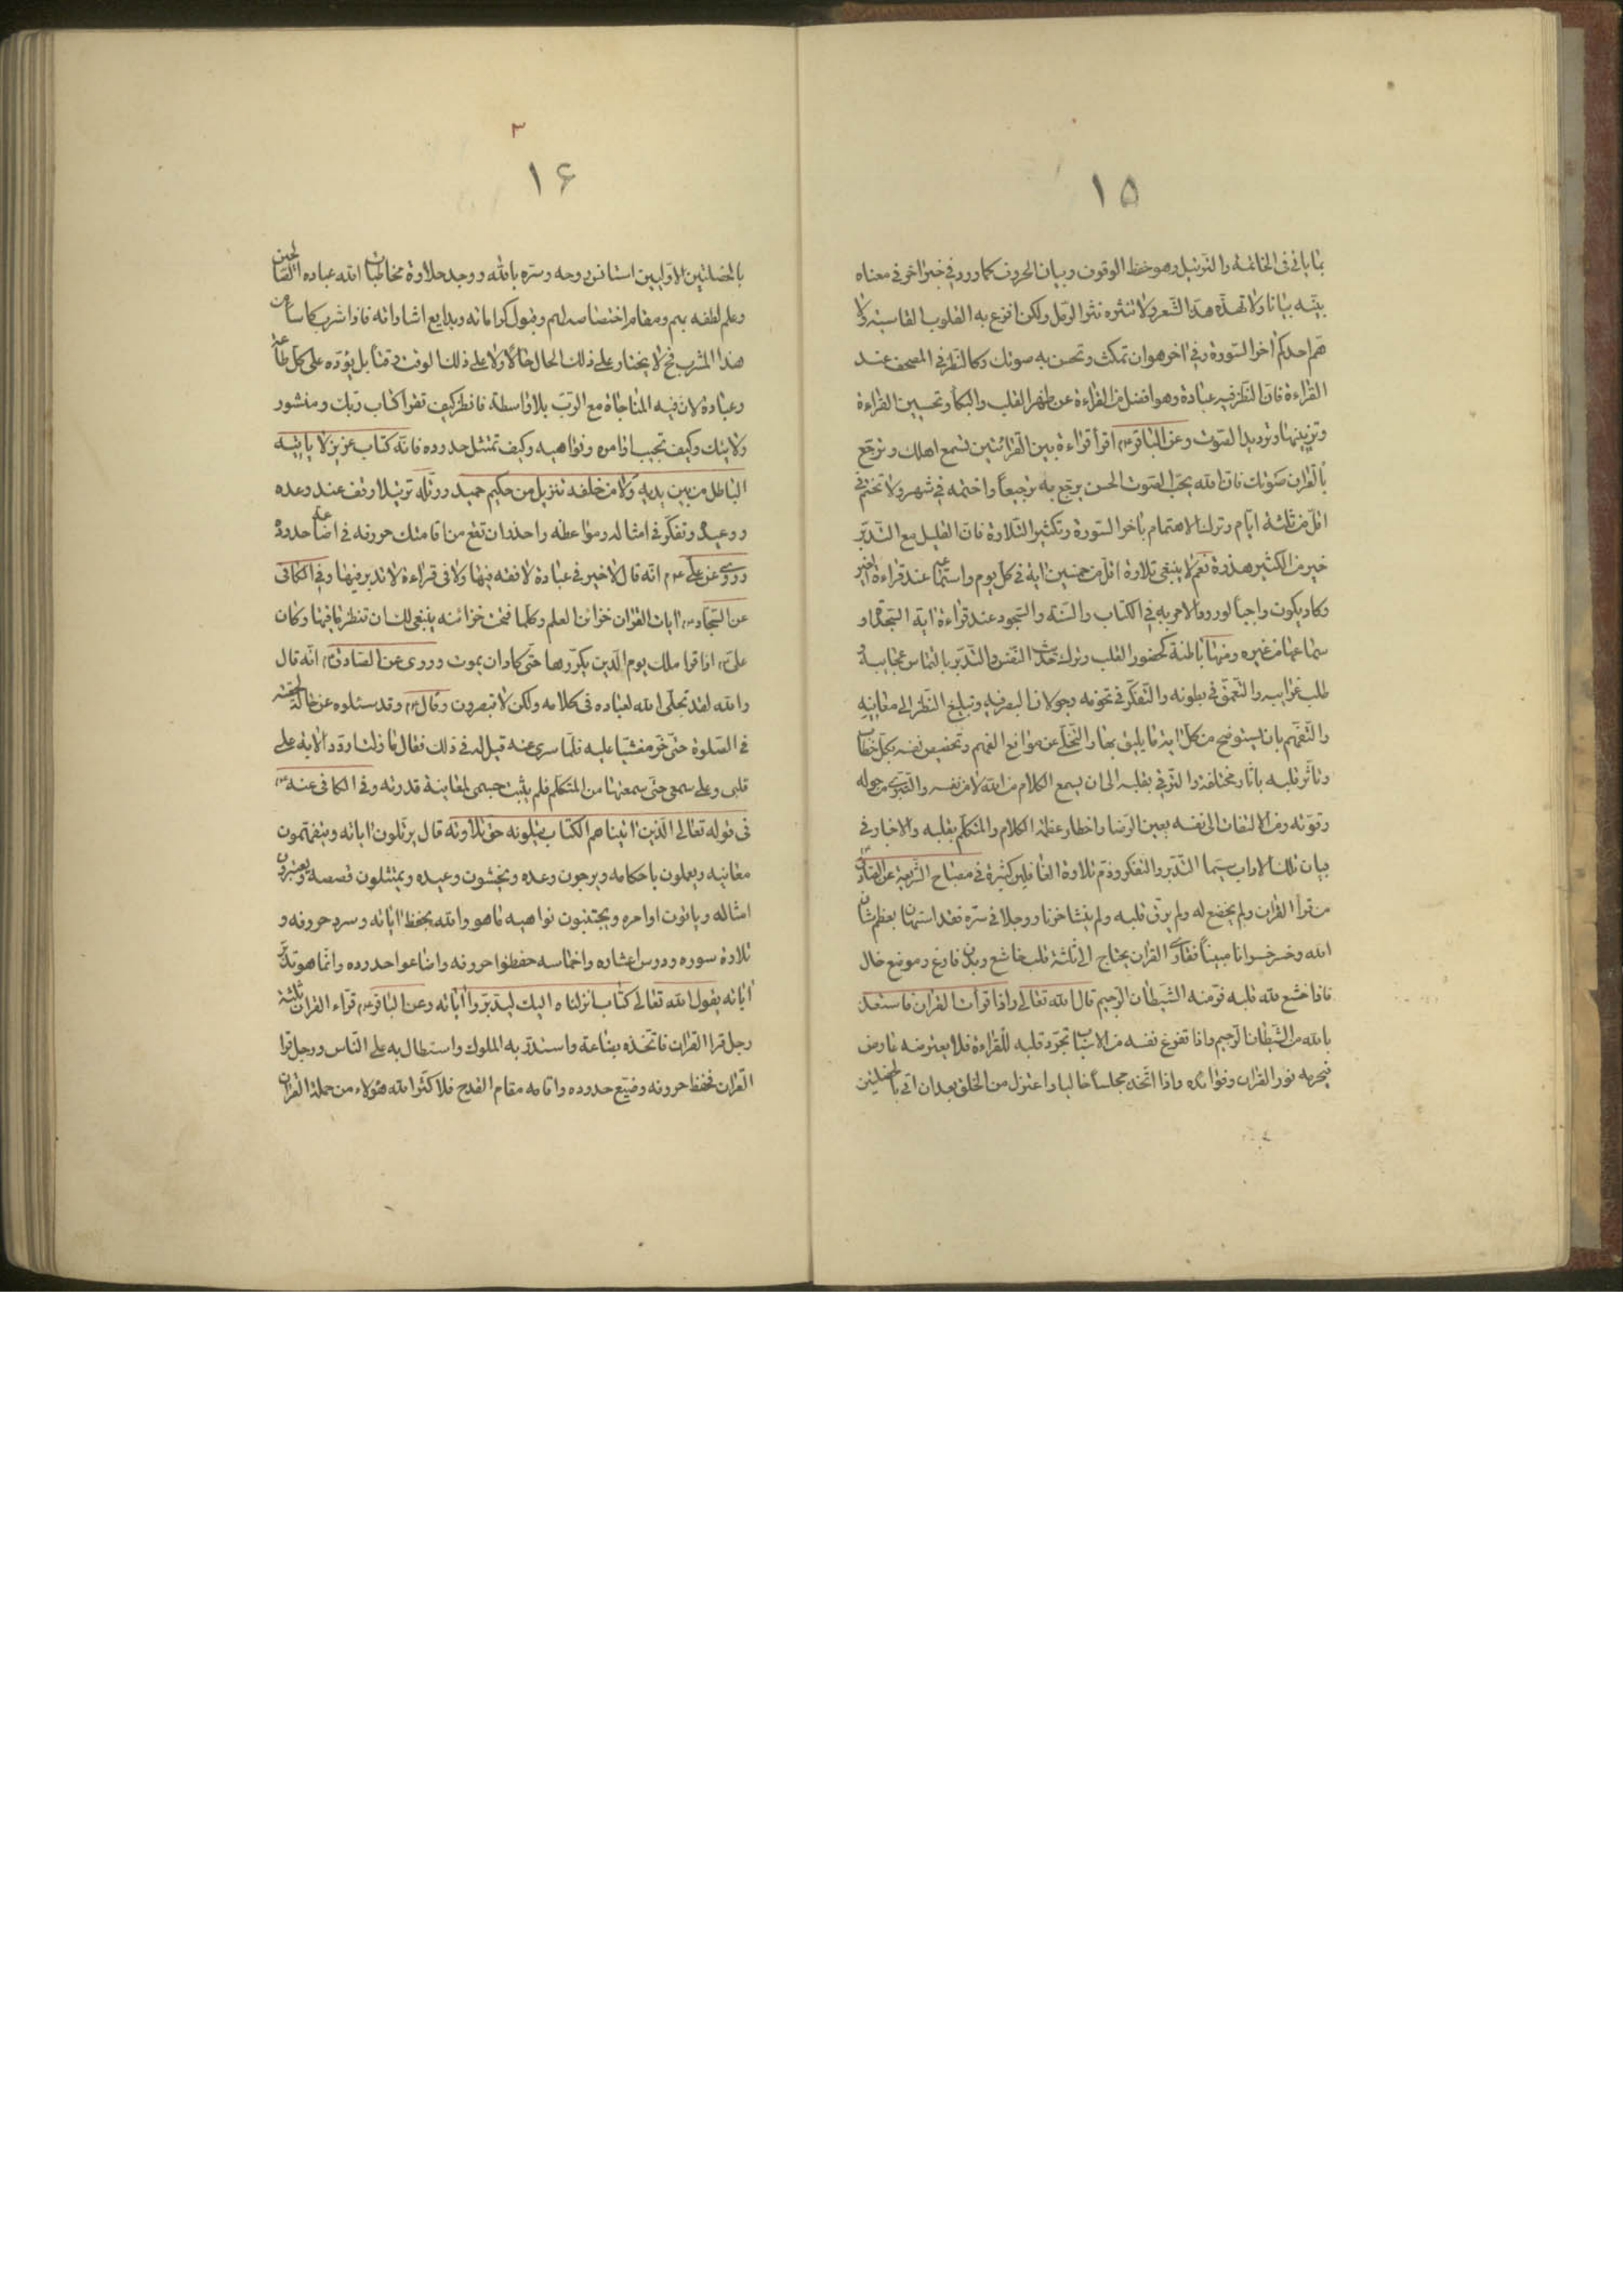 ١٥
بما ياتى فى الخاتمة والترتيل وهو حفظ الوقوف وبيان الحروف كما ورد فى خبر اخر فى معناه
بيّنه بيانا ولا تهذّه هذّ الشعر ولا تنثره نثر الرمل ولكن افزع به القلوب القاسية ولا
همّ احدكم اخر السورة وفى اخر هو ان تمكث وتحسن به صوتك وكالنظر فى المصحف عند
القراءة فان النظر فيه عبادة وهو افضل من القراءة عن ظهر القلب والبكاء وتحسين القراءة
وتزيينها وترديد الصوت وعن الباقر اقرأ قراءة بين القرائتين تسمع اهلك ورجّع
بالقران صوتك فان الله يحبّ الصوت الحسن يرجّع به ترجيعاً واختمه فى شهر ولا تختم فى
اقل من ثلثة ايام وترك الاهتمام باخر السورة وتكثير التلاوة فان القليل مع التدبّر
خير من الكثير هذرة نعم لا ينبغى تلاوة اقل من خمسين اية فى كل يوم واستماع عند قراءة الغير
وكاد يكون واجباً لورود الامر به فى الكتاب والسنة والسجود عند قراءة اية السجدة او
سماعها من غيره ومنها باطنة كحضور القلب وترك حديث النفس والتدبّر بالتماس عجايبه و
طلب غرايبه والتعمّق فى بطونه والتفكّر فى تخومه وجولان البصر فيه وتبليغ النظر الى معانيه
والتفهّم بان يستوضح من كل اية ما يليق بها والتخلّى عن موانع الفهم وتخصيص نفسه بكل خطاب
وتاثّر قلبه باثار مختلفة والترقى بقلبه الى ان يسمع الكلام من الله لا من نفسه والتبرّى من حوله
وقوّته ومن الالتفات الى نفسه بعين الرضا واخطار عظمة الكلام والمتكلّم بقلبه والاخبار فى
بيان تلك الاداب سيما التدبّر والتفكر وذمّ تلاوة الغافلين كثيرة فى مصباح الشريعة عن الصادق
من قرأ القران ولم يخضع له ولم يرقّ قلبه ولم ينشا حزنا ووجلا فى سرّه فقد استهان بعظم شان
الله وخسر خسرانا مبيناً فقارى القران يحتاج الى ثلثة قلب خاشع وبدن فارغ وموضع خال
فاذا خشع لله قلبه فرّ منه الشيطان الرجيم قال الله تعالى واذا قرأت القران فاستعذ
بالله من الشيطان الرجيم واذا تفرغ نفسه من الاسباب تجرّد قلبه للقراءة فلا يعترضه عارض
فيحرمه نور القران وفوائده واذا اتّخذ مجلساً خاليا واعتزل من الخلق بعد ان اتى بالخصلتين
١۶
٣
بالخصلتين الاوليين استانس روحه وسرّه بالله ووجد حلاوة مخاطبات الله عباده الصالحين
وعلم لطفه بهم ومقام اختصاصه لهم وقبول كراماته وبدايع اشاراته فاذا شرب كاسا من
هذا المشرب فح لا يختار على ذلك الحال حالاً ولا على ذلك الوقت وقتاً بل يؤثره على كل طاعة
وعبادة لان فيه المناجاة مع الربّ بلا واسطة فانظر كيف تقرأ كتاب ربك ومنشور
ولايتك وكيف تجيب اوامره ونواهيه وكيف تمتثل حدوده فانه كتاب عزيز لا ياتيه
الباطل من بين يديه ولا من خلفه تنزيل من حكيم حميد ورتّله ترتيلا وقف عند وعده
ووعيده وتفكّر فى امثاله ومواعظه واحذر ان تقع من اقامتك حروفه فى اضاعة حدوده
وروى عن على انه قال لا خير فى عبادة لا فقه فيها ولا فى قراءة لا تدبر فيها وفى الكافى
عن السجاد ايات القران خزائن العلم وكلما فتحت خزائنه ينبغى لك ان تنظر ما فيها وكان
على اذا قرا ملك يوم الدين يكرّرها حتى كاد ان يموت وروى عن الصادق انه قال
والله لقد تجلّى الله لعباده فى كلامه ولكن لا تبصرون وقال وقد سئلوه عن حالة لحقته
فى الصلوة حتى خرّ مغشيّا عليه فلما سرى عنه قيل له فى ذلك فقال ما زلت اردّد الاية على
قلبى وعلى سمعى حتى سمعتها من المتكلم فلم يثبت جسمى لمعاينة قدرته وفى الكافى عنه
فى قوله تعالى الذين اتيناهم الكتاب يتلونه حق تلاوته قال يرتلون اياته ويتفهّمون
معانيه ويعملون باحكامه ويرجون وعده ويخشون وعيده ويمتثلون قصصه ويعتبرون
امثاله وياتون اوامره ويجتنبون نواهيه ما هو والله بحفظ اياته وسرد حروفه و
تلاوة سوره ودرس اعشاره واخماسه حفظوا حروفه واضاعوا حدوده وانما هو تدبّر
اياته يقول الله تعالى كتاب انزلناه اليك ليدبّروا اياته وعن الباقر قراء القران ثلثة
رجل قرا القران فاتخذه بضاعة واستدرّ به الملوك واستطال به على الناس ورجل قرا
القران فحفظ حروفه وضيّع حدوده واقامه مقام القدح فلا كثّر الله هؤلاء من حملة القران